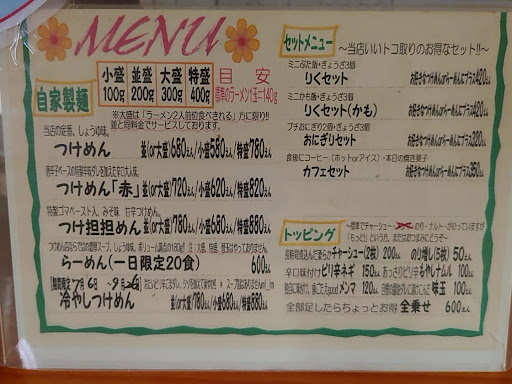 MENU
自家製麺
小盛 100g
並盛 200g
大盛 300g
特盛 400g
目安
標準のラーメン1玉=140g
※大盛は「ラーメン2人前位食べきれる」方に限り!!
並と同料金でサービスしております。
当店の定番、しょうゆ味。
つけめん 並(or大盛)680えん/小盛580えん/特盛780えん
つけめん「赤」 並(or大盛)720えん/小盛620えん/特盛820えん
特製ゴマペースト入、みそ味 甘辛つけめん。
つけ担担めん 並(or大盛)780えん/小盛680えん/特盛880えん
らーめん(一日限定20食) 600えん
冷やしつけめん 並(or大盛)780えん/小盛680えん/特盛880えん
セットメニュー
〜当店いいトコ取りのお得なセット!!〜
ミニぶた飯+ぎょうざ3個
りくセット お好きなつけめんorらーめんにプラス420えん
ミニかも飯+ぎょうざ3個
りくセット(かも) お好きなつけめんorらーめんにプラス420えん
プチおにぎり2個+ぎょうざ3個
おにぎりセット お好きなつけめんorらーめんにプラス320えん
食後にコーヒー(ホットorアイス)+本日の焼き菓子
カフェセット お好きなつけめんorらーめんにプラス350えん
トッピング
「もっと」という方、またはおつまみにどうぞ〜
チャーシュー(2枚) 200えん のり増し(5枚) 50えん
辛口味付け ピリ辛ネギ 150えん あっさりピリ辛 もやしナムル 100えん
歯ごたえgood メンマ 120えん 味玉 100えん
全部足したらちょっとお得 全乗せ 600えん